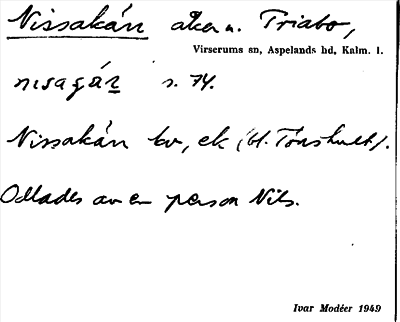 Nissakån åker u. Triabo,
Virserums sn, Aspelands hd, Kalm. l.
nɪsagån s. 74.
Nissakån kv, ek (bl. Tönshult).
Odlades av en person Nils.
Ivar Modéer 1949